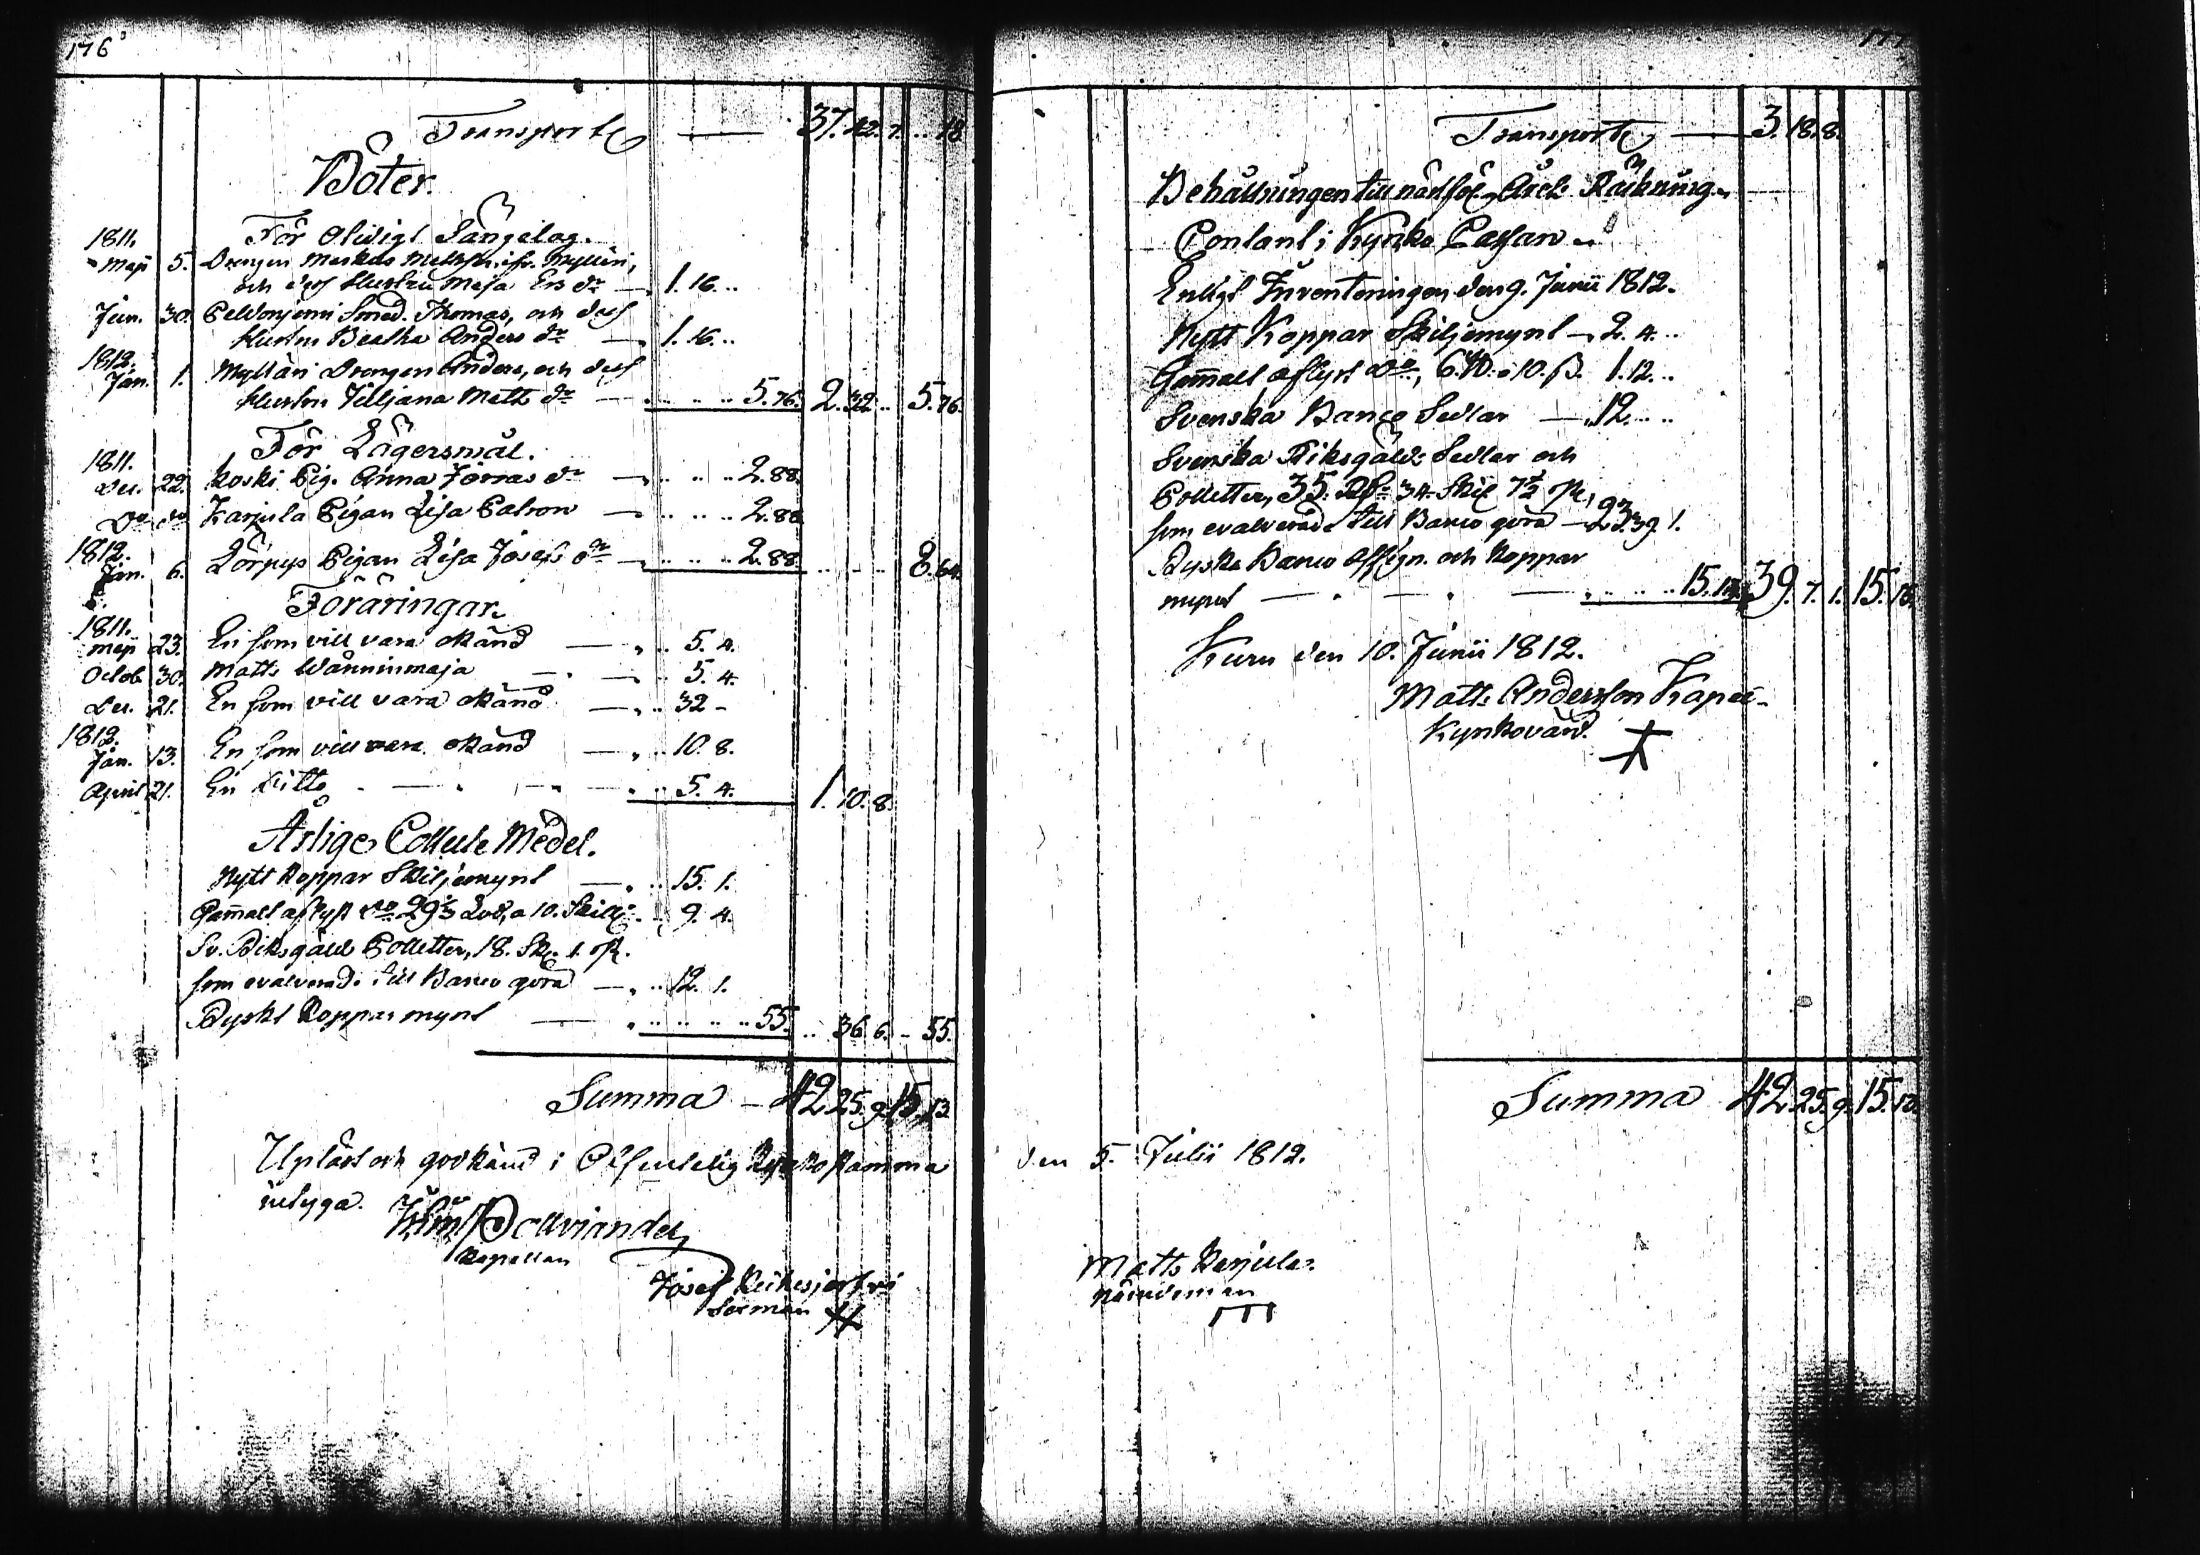 176
Transport — 37. 42. 7. .. 18
Böter.
För Olidigt Sängelag.
1811.
Maji 5. Drengen Markus Mattss. ifr. Mylläri,
och dess Hustru Maja Ers dr — 1. 16. ..
Jun. 30. Peldonjemi Smed. Thomas, och dess
Hustru Beatha Anders dr — 1. 16. ..
1812.
Jan. 1. Mylläri Drengen Anders, och dess
Hustru Juljana Matts dr — .. .. .. 5. 76. 2. 32 .. 5. 76.
För Lägersmål.
1811.
Dec. 22. Koski Pig. Anna Jöras dr — .. .. .. 2. 88.
Do do Karjula Pigan Lisa Calson — .. .. .. 2. 88
1812.
Jan. 6. Lörpys Pigan Lisa Josefs dr — .. .. .. 2. 88. .. .. .. 8. 64.
Föräringar
1811.
Maji 23. En som vill vara okänd — .. 5. 4.
Octob. 30. Matts Wänninmaja — .. 5. 4.
Dec. 21. En som vill vara okänd — .. 32 -
1812.
Jan. 13. En som vill vara okänd — .. 10. 8.
April 21. En ditto — .. 5. 4. 1. 10. 8.
Årlige Collecte Medel.
Nytt Koppar Skiljemynt — .. 15. 1.
Gam̄alt aflyst do 29⅓ Lod, a 10. Skill. .. 9. 4.
Sv. Riksgälds Polletter, 18. Sk. 1. rst.
som evalverad. till Banco göra — .. 12. 1.
Ryskt Kopparmynt — .. .. .. .. 55. .. 36 6. - 55.
Summa — 42 25. 9. 15. 13.
Upläst och godkänd i Offentelig Kyrko stamma
intyga.
Kapellan
Josef Keihesjerfvi
Sexman
177
Transport — 3. 18. 8.
Behållningen till nästföl. Års Räkning
Contant i Kyrko Cassan
Enligt Inventeringen den 9. Junii 1812.
Nytt Koppar Skiljemynt — 2. 4. ..
Gam̄alt aflyst do, 6. ℔. a 10. ß. 1. 12. ..
Svenska Banco Sedlar — 12. .. ..
Svenska Riksgälds Sedlar och
Polletter, 35. Rdr 34. Skil 7½ rst,
som evalverade till Banco göra — 23. 39. 1.
Ryska Banco Assign. och Koppar
mynt — .. .. .. 15. 13. 39. 7. 1. 15. 13.
Kuru den 10. Junii 1812.
Matts Andersson Kapee
Kyrkovärd.
Summa 42. 25. 9. 15. 13.
den 5. Julii 1812.
Matts Karjula.
Nämndeman